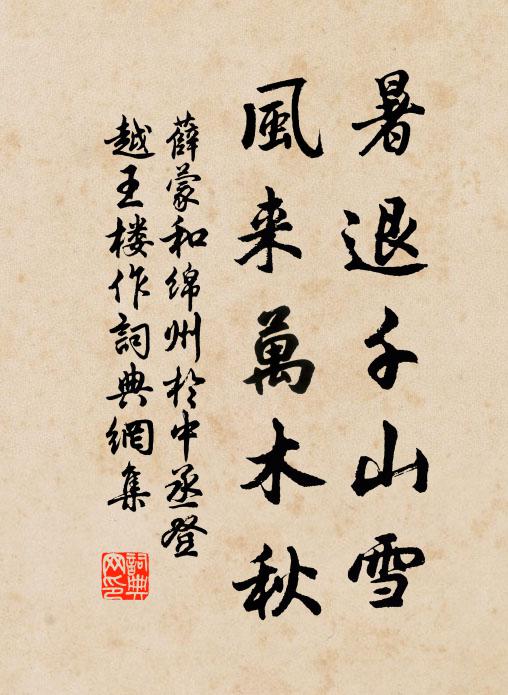 暑退千山雪
風来萬木秋
薛蒙和绵州於中丞登
越王楼作詞典網集
詞典
网印